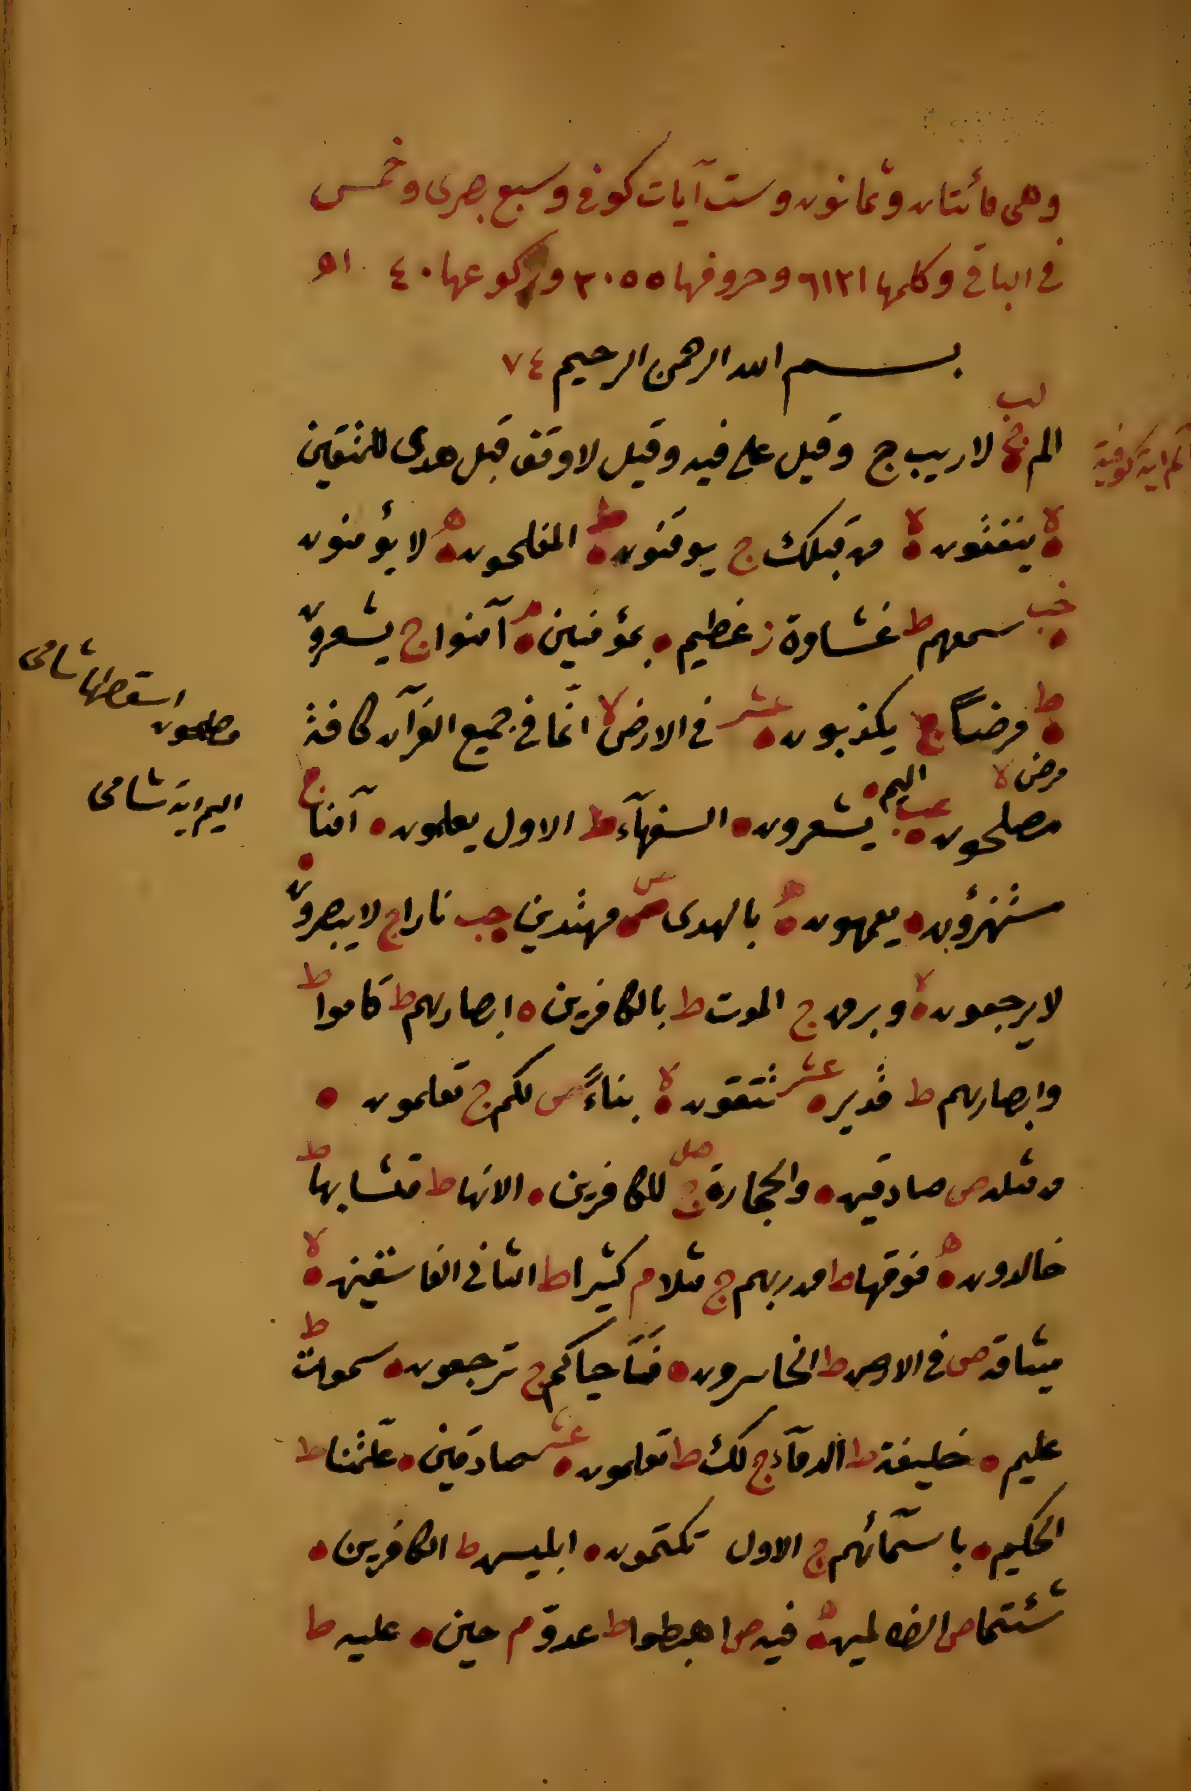 وهى مائتان وثمانون وست آيات كوفى وسبع بصرى وخمس
فى الباقى وكلمها ٦١٢١ وحروفها ٢٠٥٥ وركوعها ٤٠ اه
بسم الله الرحمن الرحيم ٧٤
الم ج لب لاريب ج وقيل على فيه وقيل لاوقف قبل هدى للمتقين
الم اية كوفية
ه لا ينفقون ه لا من قبلك ج يوقنون ه ط المفلحون ه لا يؤمنون
خب سمعهم ط غشاوة ز عظيم ه بمؤمنين ه آمنوا ج يشعرون
ط مرضاً ج يكذبون ه عشر فى الارض لا انما فى جميع القرآن كافة
اسقطها شامى
مصلحون
مرض لا
مصلحون ه عب اليم ه يشعرون ه السفهآء ط الاول يعلمون ه آمنا ج
اليم اية شامى
مستهزؤن ه يعمهون ه بالهدى ص مهتدين جب نارا ج لايبصرون ه
لايرجعون ه لا وبرق ج الموت ط بالكافرين ه ابصارهم ط قاموا ط
وابصارهم ط قدير ه عشر تتقون ه لا بناءً ص لكم ج تعلمون ه
مثله ص صادقين ه والحجارة ج صل للكافرين ه الانها ط متشابها ط
خالدون ه فوقها ط من ربهم ج مثلا م كثيرا ط الثانى الفاسقين ه لا
ميثاقه ص فى الارض ط الخاسرون ه فأحياكم ج ترجعون ه سموات ط
عليم ه خليفة ط الدمآء ج لك ط تعلمون ه عشر صادقين ه علمتنا ط
الحكيم ه باسمآئهم ج الاول تكتمون ه ابليس ط الكافرين ه
شئتما ص الظالمين ه فيه ص اهبطوا ط عدوّ م حين ه عليه ط